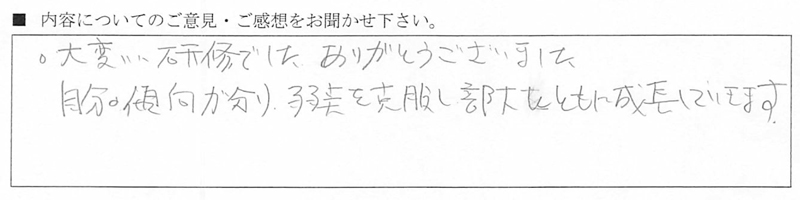 ■ 内容についてのご意見・ご感想をお聞かせ下さい。
。大変いい研修でした、ありがとうございました
自分の傾向が分り、弱点を克服し部下とともに成長していきます。